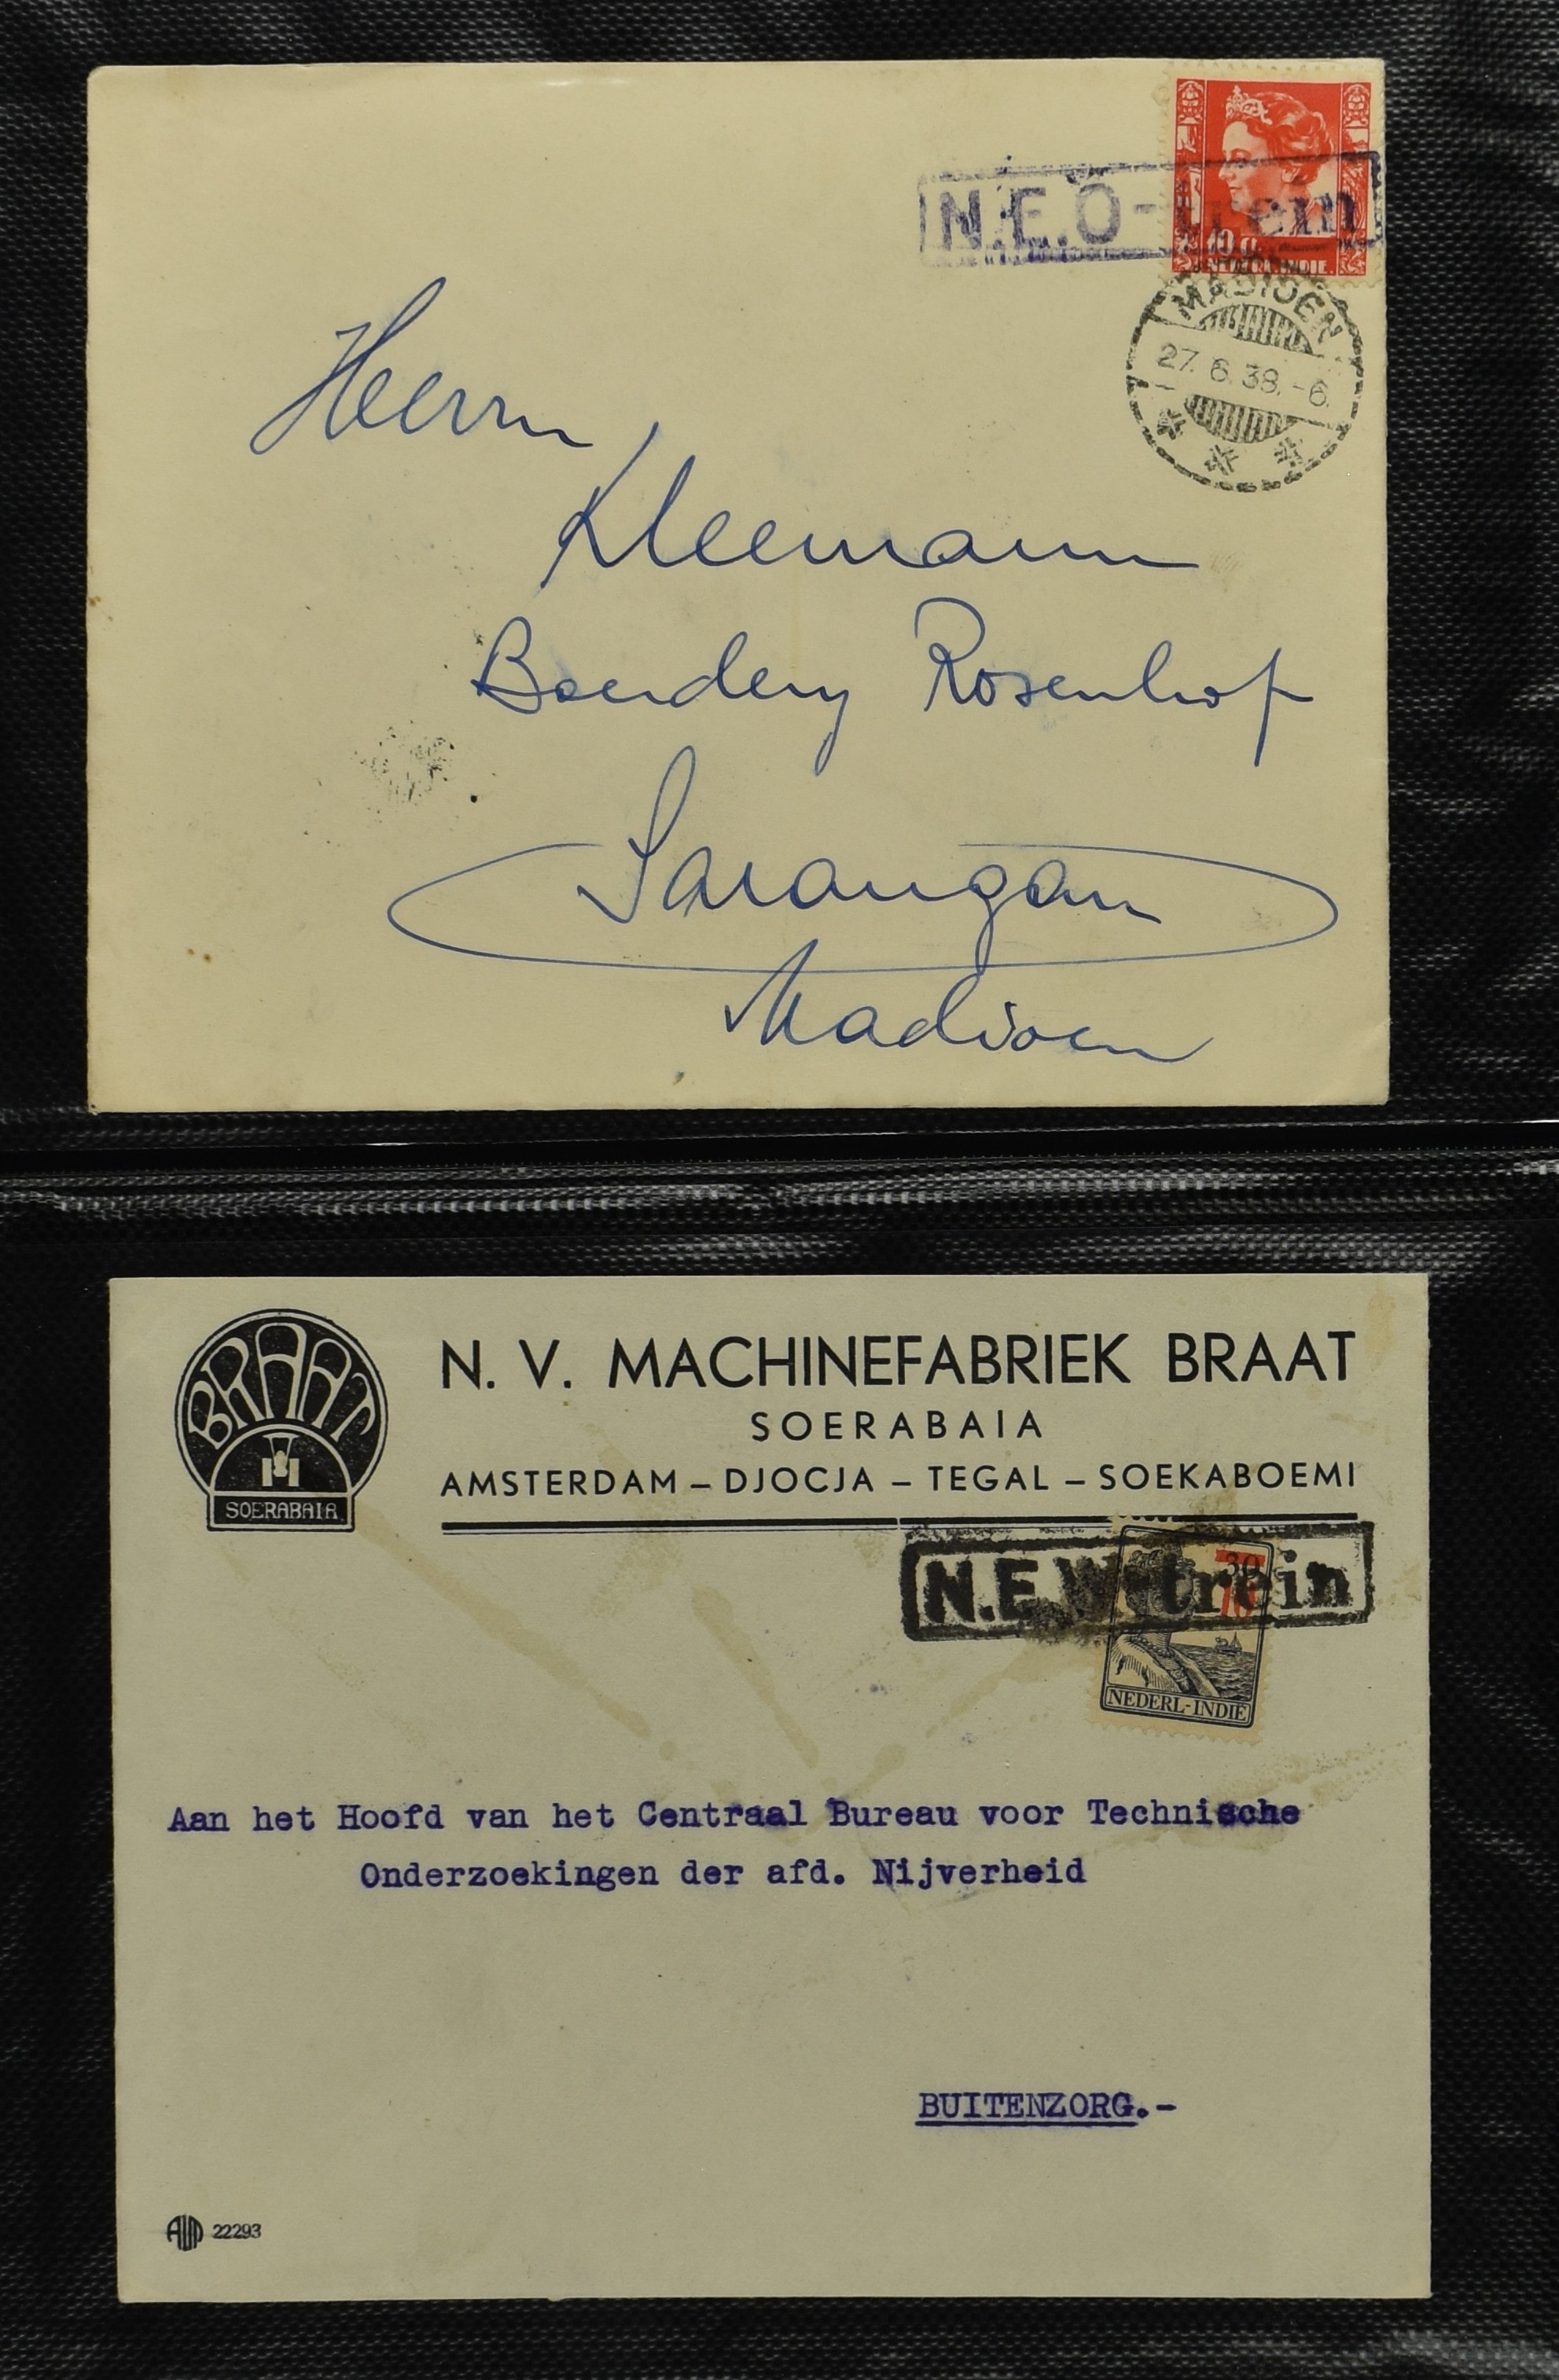 N.E.O-trein
10 ct
NEDERL.INDIE
MADIOEN
27.6.38.-6.
Herrn
Kleemann
Boerdery Rosenhof
Sarangan
Madioen
BRAAT
SOERABAIA
N. V. MACHINEFABRIEK BRAAT
SOERABAIA
AMSTERDAM – DJOCJA – TEGAL – SOEKABOEMI
N.E.W-trein
30
10
NEDERL-INDIE
Aan het Hoofd van het Centraal Bureau voor Technische
Onderzoekingen der afd. Nijverheid
BUITENZORG.-
22293